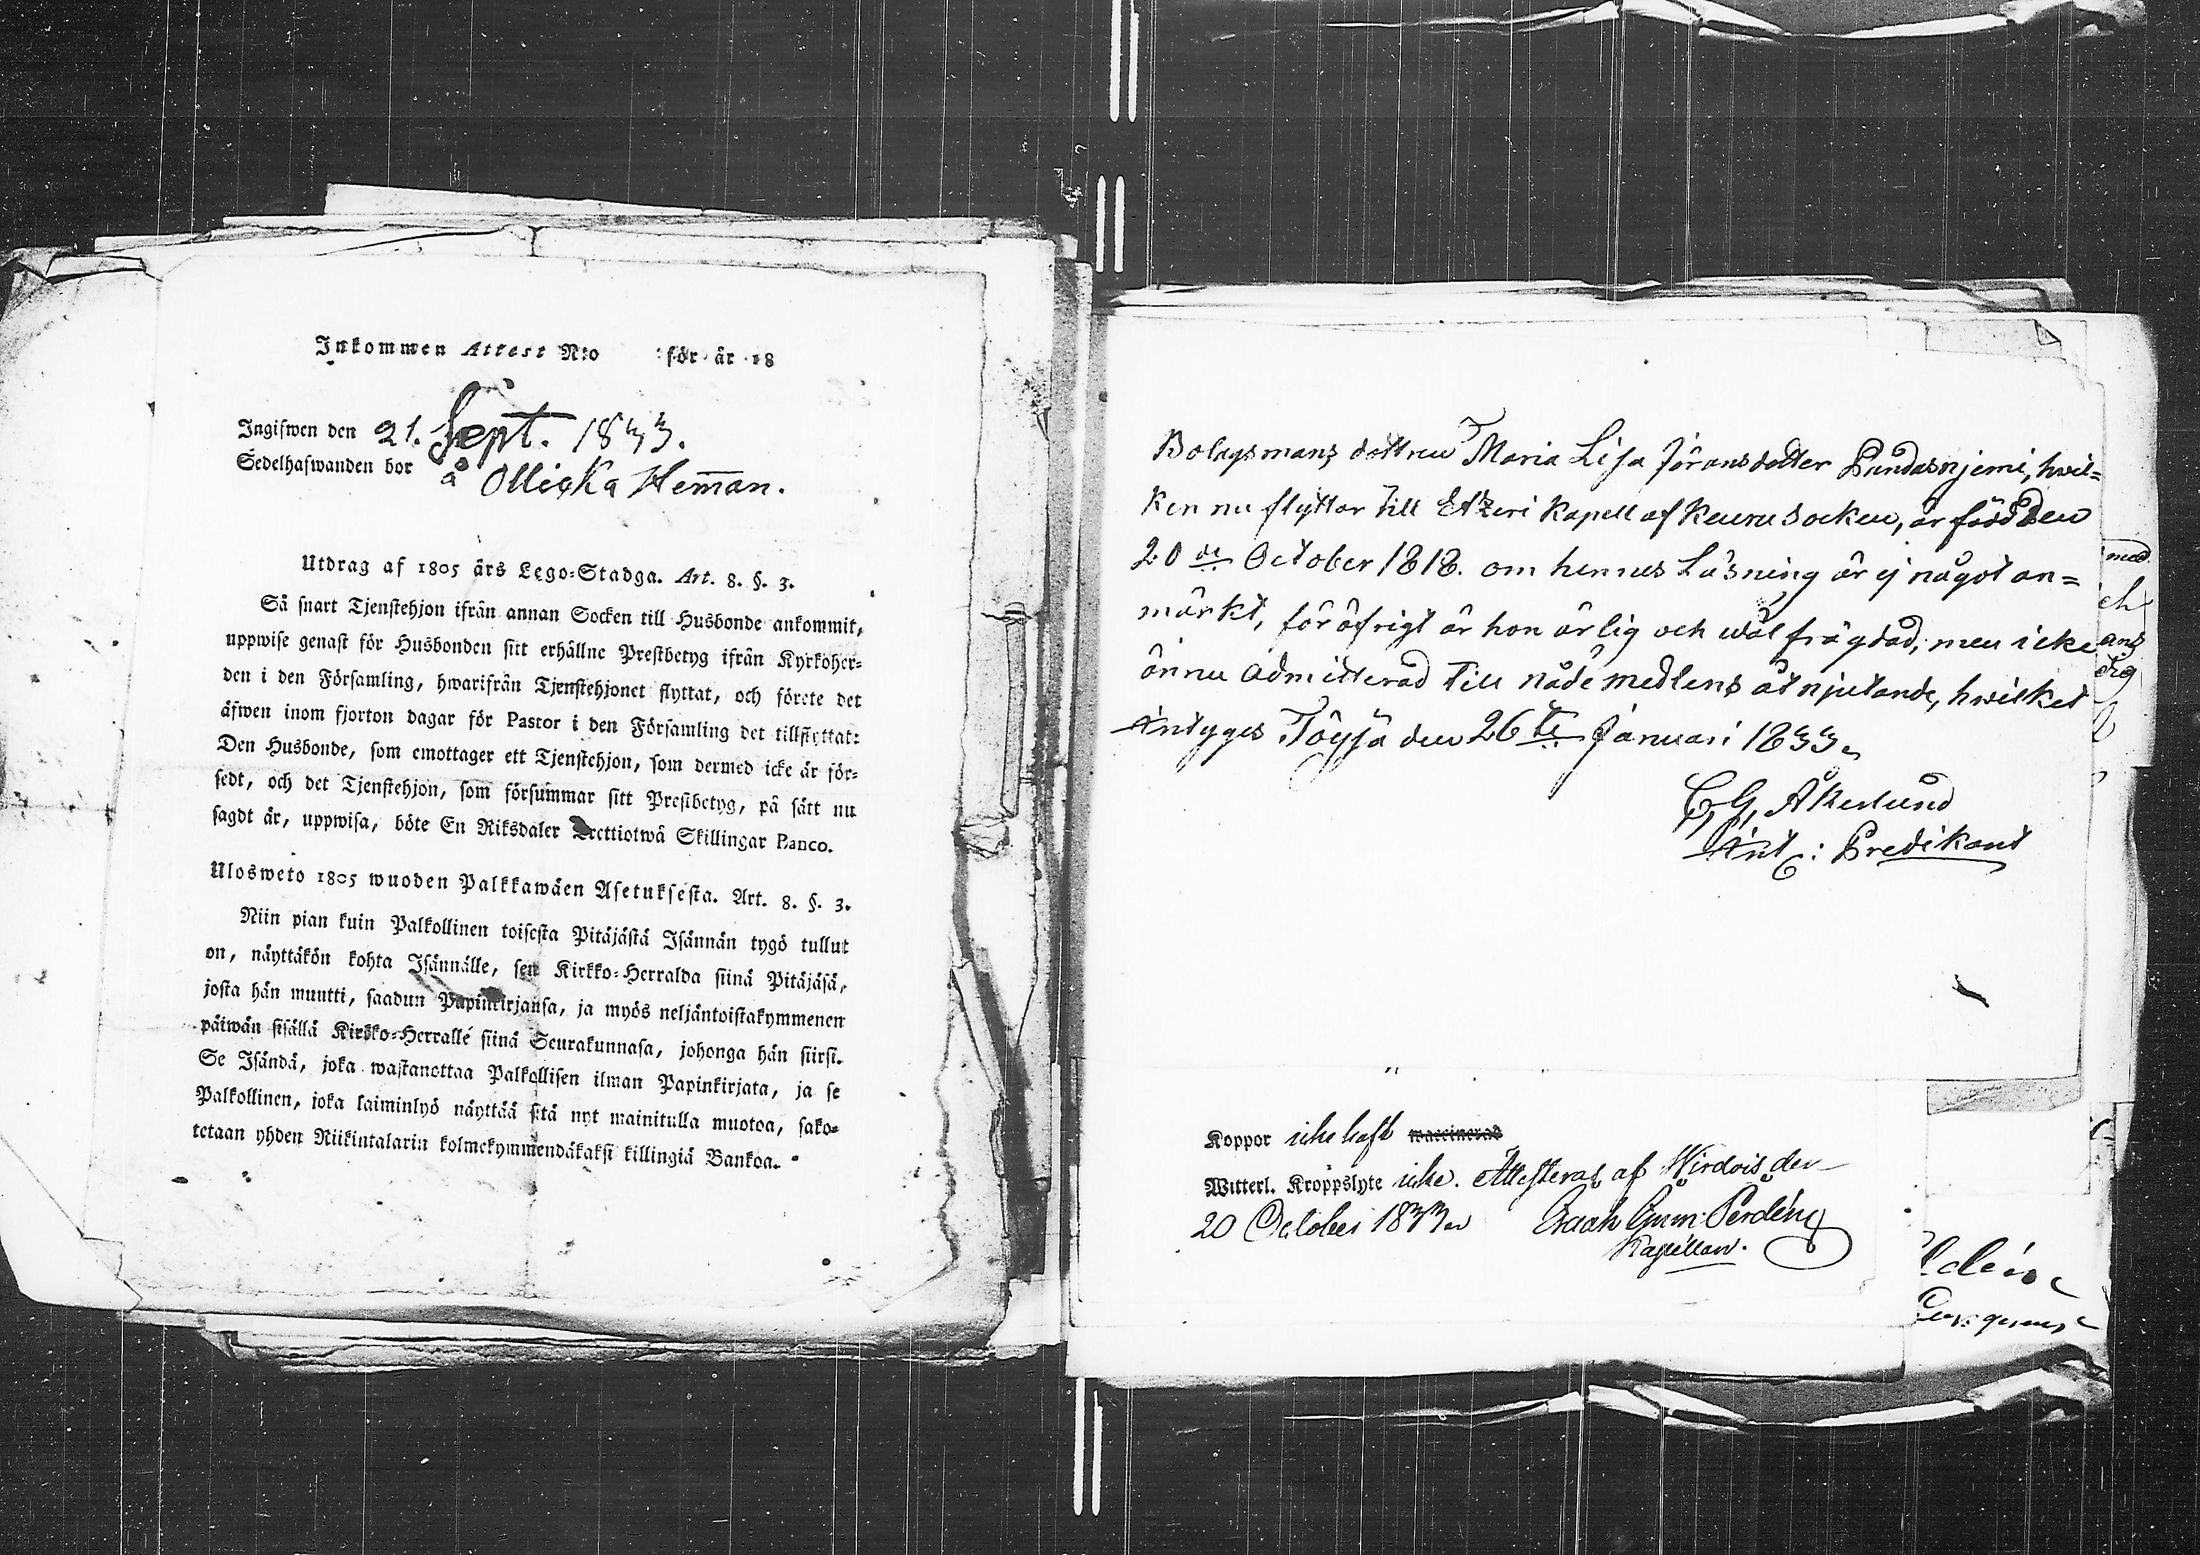 Inkommen Attest N:o för år 18
Ingifwen den 21. Sept. 1833.
Sedelhafwanden bor å Ollicka Hemman.
Utdrag af 1805 års Lego-Stadga. Art. 8. §. 3.
Så snart Tjenstehjon ifrån annan Socken till Husbonde ankommit,
uppwise genast för Husbonden sitt erhållne Prestbetyg ifrån Kyrkoher-
den i den Församling, hwarifrån Tjenstehjonet flyttat, och förete det
äfwen inom fjorton dagar för Pastor i den Församling det tillflyttat:
Den Husbonde, som emottager ett Tjenstehjon, som dermed icke är för-
sedt, och det Tjenstehjon, som försummar sitt Prestbetyg, på sätt nu
sagdt är, uppwisa, böte En Riksdaler Trettiotwå Skillingar Banco.
Ulosweto 1805 wuoden Palkkawäen Asetuksesta. Art. 8. §. 3.
Niin pian kuin Palkollinen toisesta Pitäjästä Isännän tygö tullut
on, näyttäkön kohta Isännälle, sen Kirkko-Herralda siinä Pitäjäsä,
josta hän muutti, saadun Papinkirjansa, ja myös neljäntoistakymmenen
päiwän sisällä Kirkko-Herrallé siinä Seurakunnasa, johonga hän siirsi.
Se Isändä, joka wastanottaa Palkollisen ilman Papinkirjata, ja se
Palkollinen, joka laiminlyö näyttää sitä nyt mainitulla muotoa, sako-
tetaan yhden Riikintalarin kolmekymmendäkaksi killingiä Bankoa.
Bolagsmans dottren Maria Lisa Jöransdotter Pundasnjemi, hwil-
ken nu flyttar till Etzeri Kapell af Keuru socken, är född den
20 de October 1818. om hennes Läsning är ej något an-
märkt, för öfrigt är hon ärlig och wäl frägdad; men icke
ännu admitterad till nådemedlens åtnjutande, hwilket
intygges Töysä den 26 te Januari 1833.
C. G. Åkerlund
Ant: Predikant
Koppor icke haft waccinerad
Witterl. Kroppslyte icke. Attesteras af Wirdois den
20 October 1833
Kapellan.
med
ch